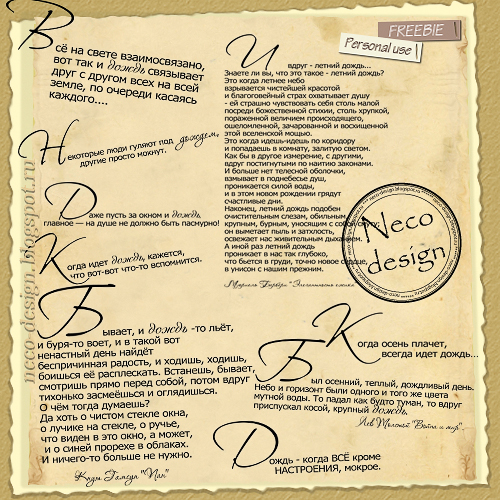 FREEBIE
Personal use
Всё на свете взаимосвязано,
вот так и дождь связывает
друг с другом всех на всей
земле, по очереди касаясь
каждого....
Некоторые люди гуляют под дождем,
другие просто мокнут.
Даже пусть за окном и дождь,
главное — на душе не должно быть пасмурно!
Когда идет дождь, кажется,
что вот-вот что-то вспомнится.
Бывает, и дождь -то льёт,
и буря-то воет, и в такой вот
ненастный день найдёт
беспричинная радость, и ходишь, ходишь,
боишься её расплескать. Встанешь, бывает,
смотришь прямо перед собой, потом вдруг
тихонько засмеёшься и оглядишься.
О чём тогда думаешь?
Да хоть о чистом стекле окна,
о лучике на стекле, о ручье,
что виден в это окно, а может,
и о синей прорехе в облаках.
И ничего-то больше не нужно.
Кнут Гамсун "Пан"
И вдруг - летний дождь...
Знаете ли вы, что это такое - летний дождь?
Это когда летнее небо
взрывается чистейшей красотой
и благоговейный страх охватывает душу
- ей страшно чувствовать себя столь малой
посреди божественной стихии, столь хрупкой,
пораженной величием происходящего,
ошеломленной, зачарованной и восхищенной
этой вселенской мощью.
Это когда идешь-идешь по коридору
и попадаешь в комнату, залитую светом.
Как бы в другое измерение, с другими,
вдруг постигнутыми по наитию законами.
И больше нет телесной оболочки,
взмывает в поднебесье душ,
проникается силой воды,
и в этом новом рождении грядут
счастливые дни.
Наконец, летний дождь подобен
очистительным слезам, обильным,
крупным, бурным, уносящим с собой смуту;
он выметает пыль и затхлость,
освежает нас живительным дыханием.
А иной раз летний дождь
проникает в нас так глубоко,
что бьется в груди, точно новое сердце,
в унисон с нашим прежним.
Мюриель Барбери "Элегантность ежика"
Neco
design
Когда осень плачет,
всегда идет дождь...
Был осенний, теплый, дождливый день.
Небо и горизонт были одного и того же цвета
мутной воды. То падал как будто туман, то вдруг
приспускал косой, крупный дождь.
Лев Толстой "Война и мир"
Дождь - когда ВСЁ кроме
НАСТРОЕНИЯ, мокрое.
neco-design.blogspot.ru